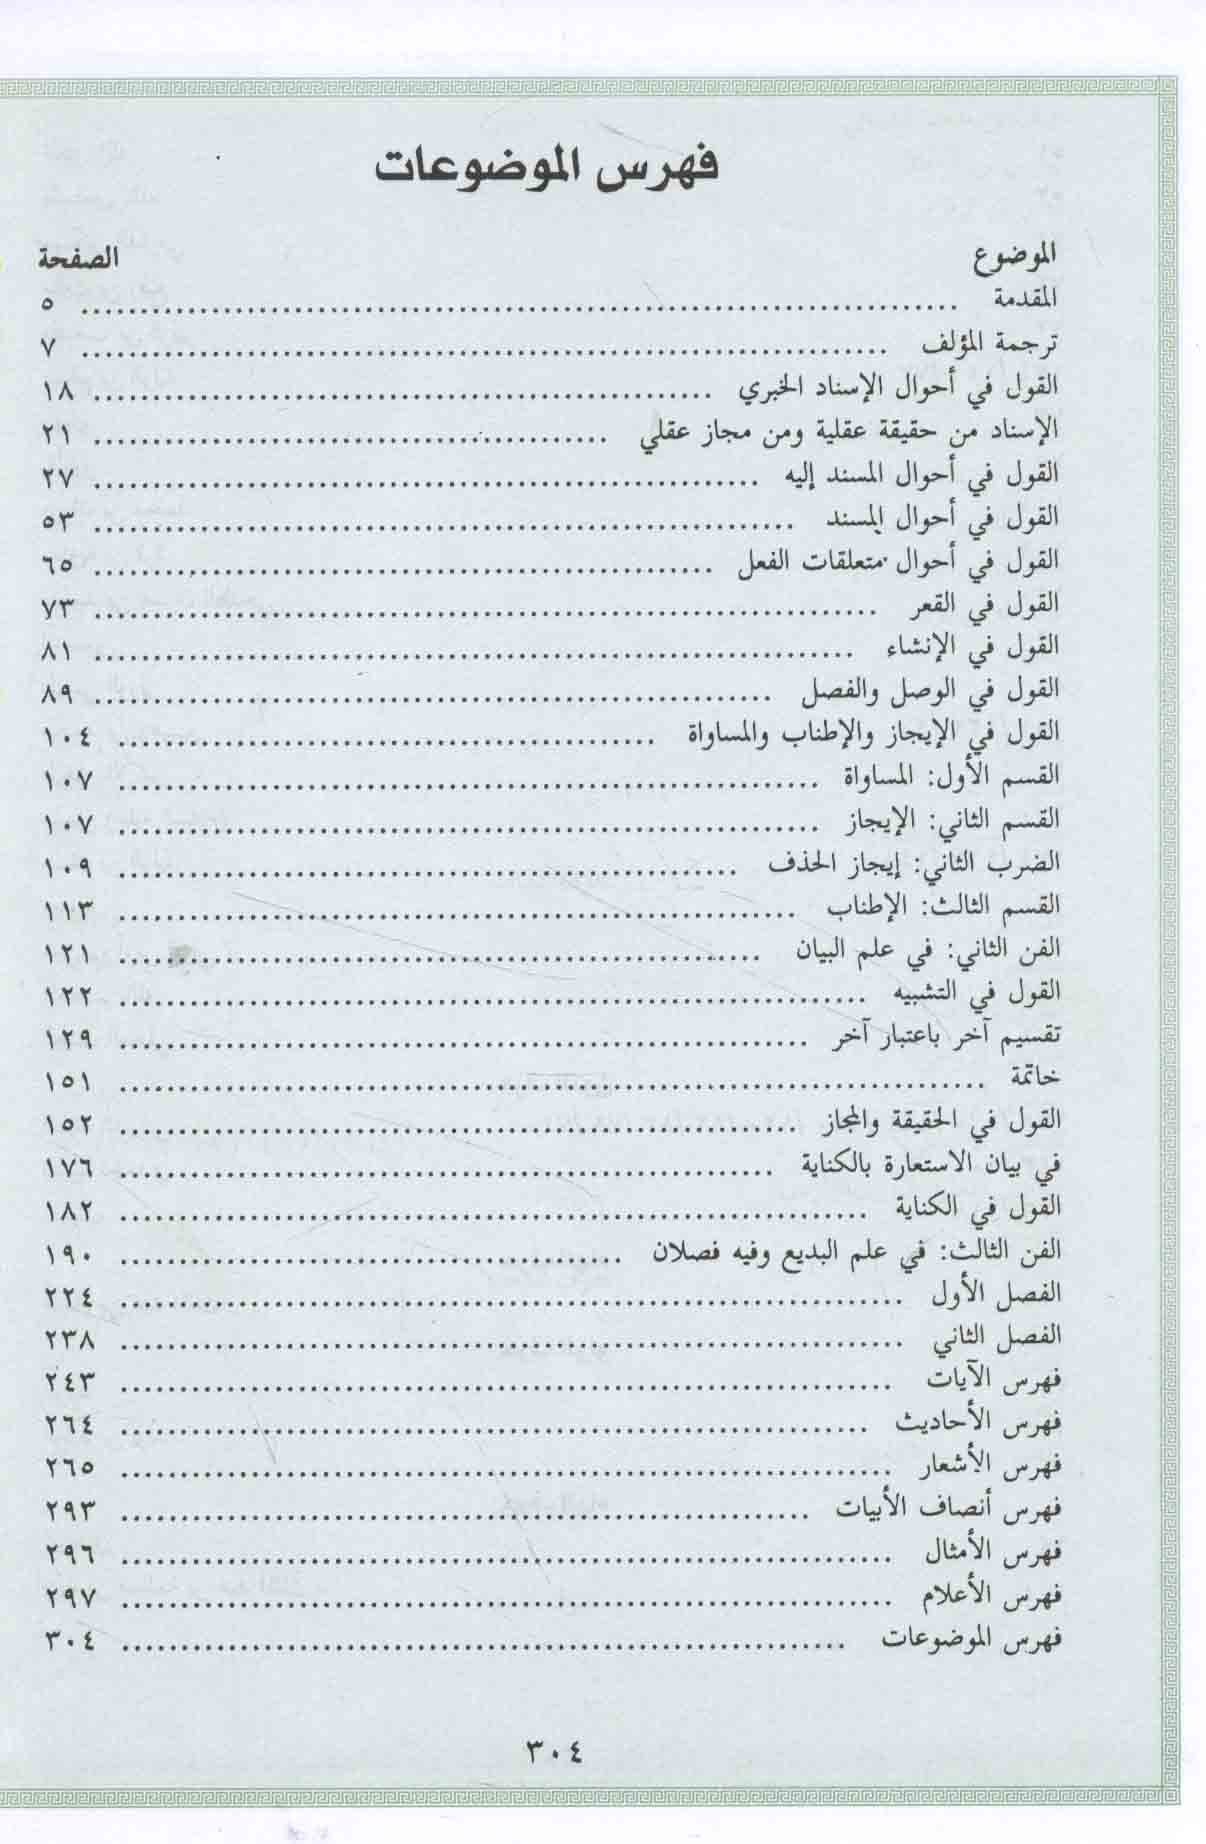 فهرس الموضوعات
الموضوع الصفحة
المقدمة ........ ٥
ترجمة المؤلف ........ ٧
القول في أحوال الإسناد الخبري ........ ١٨
الإسناد من حقيقة عقلية ومن مجاز عقلي ........ ٢١
القول في أحوال المسند إليه ........ ٢٧
القول في أحوال المسند ........ ٥٣
القول في أحوال متعلقات الفعل ........ ٦٥
القول في القعر ........ ٧٣
القول في الإنشاء ........ ٨١
القول في الوصل والفصل ........ ٨٩
القول في الإيجاز والإطناب والمساواة ........ ١٠٤
القسم الأول: المساواة ........ ١٠٧
القسم الثاني: الإيجاز ........ ١٠٧
الضرب الثاني: إيجاز الحذف ........ ١٠٩
القسم الثالث: الإطناب ........ ١١٣
الفن الثاني: في علم البيان ........ ١٢١
القول في التشبيه ........ ١٢٢
تقسيم آخر باعتبار آخر ........ ١٢٩
خاتمة ........ ١٥١
القول في الحقيقة والمجاز ........ ١٥٢
في بيان الاستعارة بالكناية ........ ١٧٦
القول في الكناية ........ ١٨٢
الفن الثالث: في علم البديع وفيه فصلان ........ ١٩٠
الفصل الأول ........ ٢٢٤
الفصل الثاني ........ ٢٣٨
فهرس الآيات ........ ٢٤٣
فهرس الأحاديث ........ ٢٦٤
فهرس الأشعار ........ ٢٦٥
فهرس أنصاف الأبيات ........ ٢٩٣
فهرس الأمثال ........ ٢٩٦
فهرس الأعلام ........ ٢٩٧
فهرس الموضوعات ........ ٣٠٤
٣٠٤